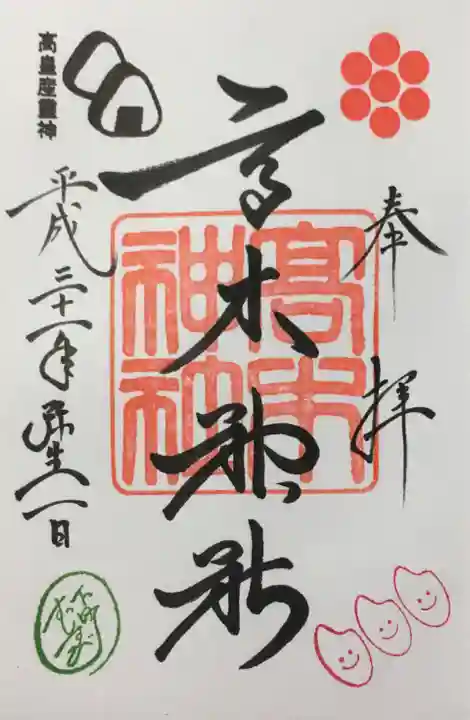 奉拝
高木神社
高木神社
高皇産靈神
平成三十一年弥生一日